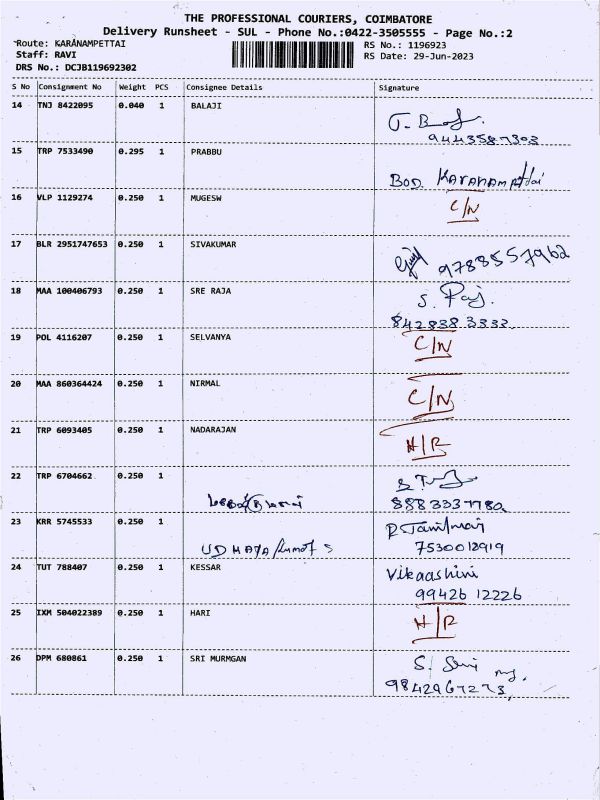 THE PROFESSIONAL COURIERS, COIMBATORE
Delivery Runsheet - SUL - Phone No.:0422-3505555 - Page No.:2
Route: KARANAMPETTAI
RS No.: 1196923
Staff: RAVI
RS Date: 29-Jun-2023
DRS No.: DCJB119692302
S No Consignment No Weight PCS Consignee Details Signature
14 TNJ 8422095 0.040 1 BALAJI
9443587303
15 TRP 7533490 0.295 1 PRABBU
16 VLP 1129274 0.250 1 MUGESW
C/N
17 BLR 2951747653 0.250 1 SIVAKUMAR
9788557962
18 MAA 100406793 0.250 1 SRE RAJA
S. Raj.
842838 3333
19 POL 4116207 0.250 1 SELVANYA
C/N
20 MAA 860364424 0.250 1 NIRMAL
C/N
21 TRP 6093405 0.250 1 NADARAJAN
H/R
22 TRP 6704662 0.250 1
8883337780
23 KRR 5745533 0.250 1
UDHAYA kumar S
7530012919
24 TUT 788407 0.250 1 KESSAR
Vikaashini
99426 12226
25 IXM 504022389 0.250 1 HARI
H/R
26 DPM 680861 0.250 1 SRI MURMGAN
9842967273